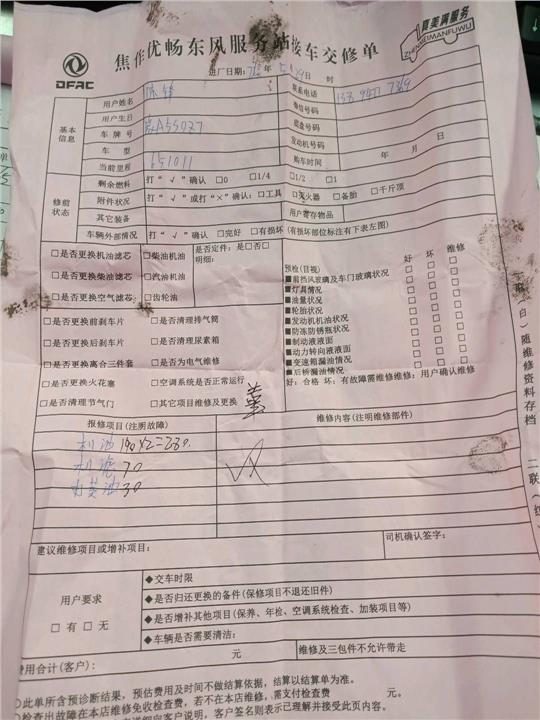 DFAC
焦作优畅东风服务站接车交修单
真美满服务
ZHENMEIMANFUWU
进厂日期: 年 月 日 时
基本信息
用户姓名
联系电话
用户生日
单位号码
车牌号
底盘号码
车型
发动机号码
当前里程 651011
购车时间 年 月 日
修前状态
剩余燃料 打“√”确认 □0 □1/4 □1/2 □1
附件状况 打“√”或打“×”确认: □工具 □灭火器 □备胎 □千斤顶
其它装备
用户寄存物品
车辆外部情况 打“√”确认 □完好 □有损坏 (有损坏部位标注有下表左图)
□是否更换机油滤芯 □柴油机油 是否定件: 是□否□
明细:
□是否更换柴油滤芯 □汽油机油
□是否更换空气滤芯 □齿轮油
□是否更换前刹车片 □是否清理排气筒
□是否更换后刹车片 □是否清理尿素箱
□是否更换离合三件套 □是否为电气维修
□是否更换火花塞 □空调系统是否正常运行
□是否清理节气门 □其它项目维修及更换
预检(目视) 好 坏 维修
■前挡风玻璃及车门玻璃状况 □ □ □
■灯具情况 □ □ □
■油量状况 □ □ □
■轮胎状况 □ □ □
■发动机机油状况 □ □ □
■防冻防锈瓶状况 □ □ □
■制动液液面 □ □ □
■动力转向液液面 □ □ □
■变速箱漏油情况 □ □ □
■后桥漏油情况 □ □ □
好: 合格 坏: 有故障需维修维修: 用户确认维修
报修项目(注明故障)
维修内容(注明维修部件)
机油 190×2=380
机滤 70
30
建议维修项目或增补项目:
司机确认签字:
用户要求
□有 □无
◆交车时限
◆是否归还更换的备件(保修项目不退还旧件)
◆是否增补其他项目(保养、年检、空调系统检查、加装项目等)
◆车辆是否需要清洁:
费用合计(客户): 元
维修及三包件不允许带走
○此单所含预诊断结果, 预估费用及时间不做结算依据, 结算以结算单为准。
检查出故障在本店维修免收检查费, 若不在本店维修, 需支付检查费 元。
客户说明, 客户签名则表示已理解并接受此页内容。
白)随维修资料存档
二联(红)